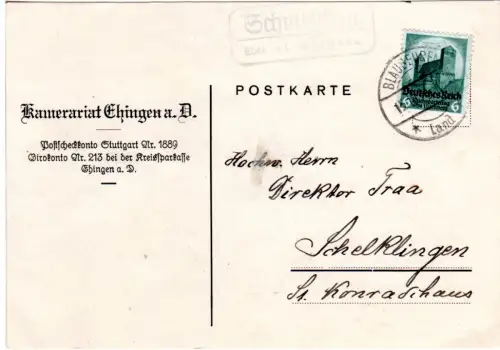 POSTKARTE
Deutsches Reich
6
Land
Kamerariat Ehingen a. D.
Postscheckkonto Stuttgart Nr. 1889
Girokonto Nr. 213 bei der Kreissparkasse
Ehingen a. D.
Hochw. Herrn
Direktor Traa
Schelklingen
St. Konradhaus